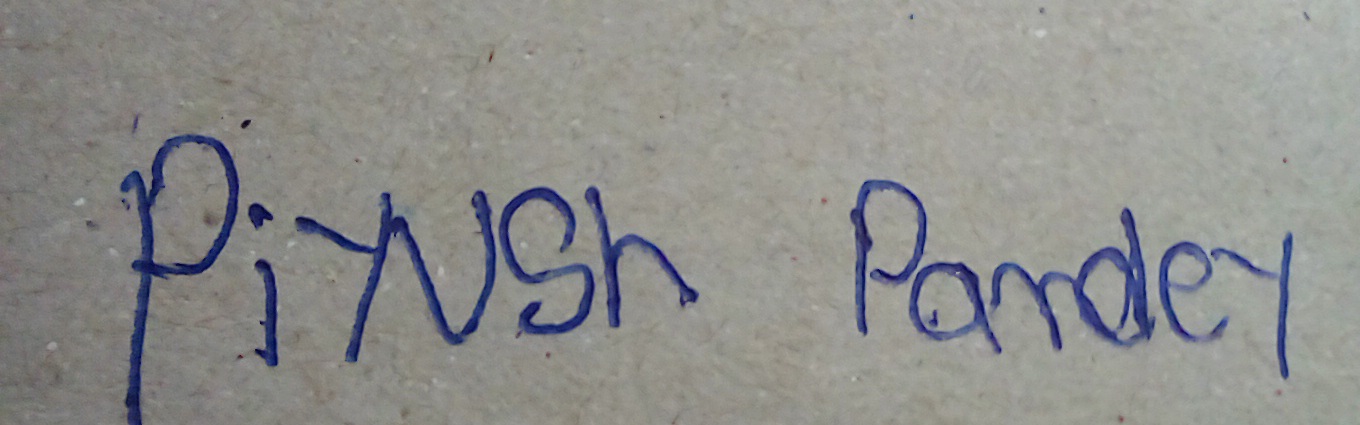 Piyush Pandey